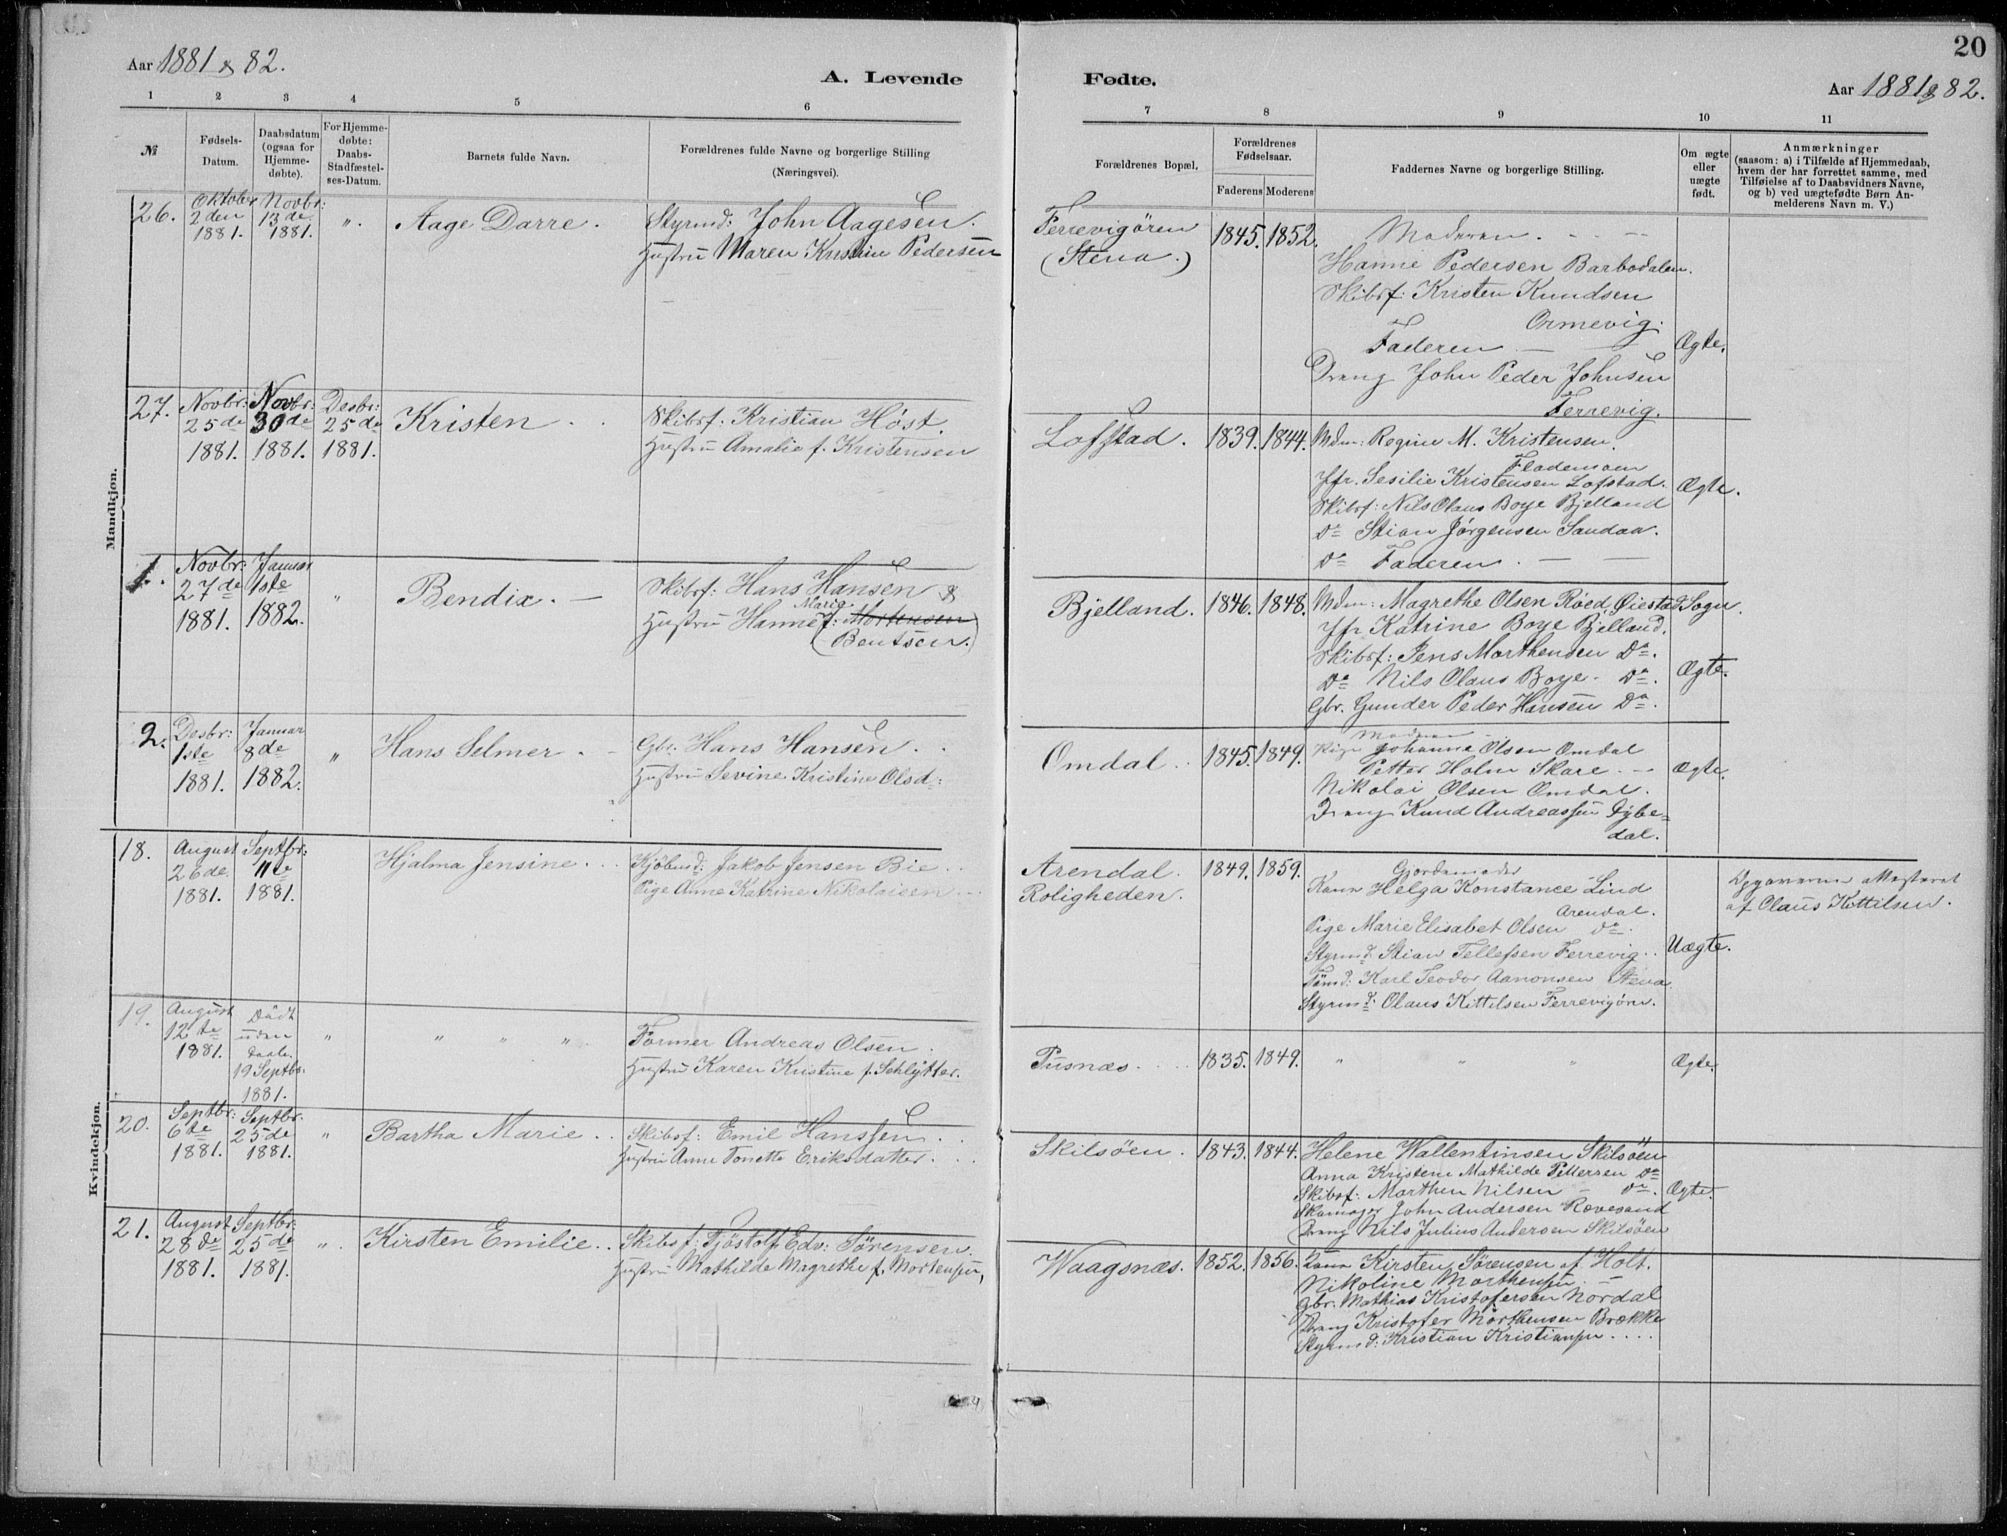 20
Aar 1881 & 82.
A. Levende Fødte.
Aar 1881 & 82.
1 2 3 4 5 6 7 8 9 10 11
№
Fødsels-
Datum.
Daabsdatum
(ogsaa for
Hjemme-
døbte).
For Hjemme-
døbte:
Daabs-
Stadfæstel-
ses-Datum.
Barnets fulde Navn.
Forældrenes fulde Navne og borgerlige Stilling
(Næringsvei).
Forældrenes Bopæl.
Forældrenes
Fødselsaar.
Faderens Moderens
Faddernes Navne og borgerlige Stilling.
Om ægte
eller
uægte
født.
Anmærkninger
(saasom: a) i Tilfælde af Hjemmedaab,
hvem der har forrettet samme, med
Tilføielse af to Daabsvidners Navne,
og b) ved uægtefødte Børn An-
melderens Navn m. V.)
Mandkjøn.
26.
Oktober
2den
1881.
Novbr:
13de
1881.
".
Aage Darre.
Styrmd: John Aagesen.
Hustru Maren Kristine Pedersen
Ferrevigören
(Stena.)
1845. 1852.
Moderen.
Hanne Pedersen Barbodalen.
Skibsf: Kristen Knudsen
Ormevig.
Faderen
Dreng John Peder Johnsen
Ferrevig.
Ægte.
27.
Novbr:
25de
1881.
Novbr:
30de
1881.
Desbr:
25de
1881.
Kristen
Skibsf: Kristian Høst.
Hustru Amalie f. Kristensen
Lofstad.
1839. 1844.
Mdm: Regine M. Kristensen
Flademoen
Jfr. Sesilie Kristensen Lofstad.
Skibsf: Nils Olaus Boye Bjelland
Do Stian Jörgensen Sandaa.
Do Faderen.
Ægte.
1.
Novbr:
27de
1881.
Januar
1ste
1882.
"
Bendix.
Skibsf: Hans Hansen &
Hustru Hanne Marie f: Mortensen
(Bentsen.)
Bjelland.
1846. 1848.
Mdm: Magrethe Olsen Röed Øiestad Sogn.
Jfr Katrine Boye Bjelland.
Skibsf: Jens Morthensen Do.
Do Nils Olaus Boye Do.
Gbr. Gunder Peder Hansen Do.
Ægte.
2.
Desbr:
1ste
1881.
Januar
8de
1882.
"
Hans Selmer.
Gbr: Hans Hansen.
Hustru Sevine Kristine Olsd:
Omdal
1845. 1849.
Moderen
Pige Johanna Olsen Omdal
Petter Holm Skare.
Nikolai Olsen Omdal.
Dreng Knud Andreassen Dybe-
dal.
Ægte.
Kvindekjøn.
18.
August
26de
1881.
Septbr:
11te
1881.
Hjalma Jensine.
Kjöbmd: Jakob Jensen Bie.
Pige Anne Katrine Nikolaisen
Arendal.
Roligheden.
1849. 1859.
Gjordemoder
Kone Helga Konstance Lind
Arendal.
Pige Marie Elisabet Olsen Do.
Styrmd: Stian Tellefsen Ferrevig.
Tömd: Karl Teodor Aanonsen Stena.
Styrmd: Olaus Kittilsen Ferrevigörn.
Uægte.
Opgaverne attesteret
af Olaus Kittilsen.
19.
August
12te
1881.
Dödt
uden
daab.
19 Septbr.
1881.
" " " "
Former Andreas Olsen.
Hustru Karen Kristine f. Schlytter.
Pusnæs.
1835. 1849.
" " "
Ægte.
20.
Septbr:
6te
1881.
Septbr.
25de
1881.
"
Bartha Marie
Skibsf: Emil Hanssen.
Hustru Anne Tonette Eriksdatter.
Skilsöen.
1843. 1844.
Helene Wallentinsen Skilsöen
Anna Kristene Mathilde Pettersen Do
Skibsf: Morthen Nilsen Do.
Skomager John Andersen Rævesand
Dreng Nils Julius Andersen Skilsöen
Ægte.
21.
August
28de
1881.
Septbr:
25de
1881.
".
Kirsten Emilie.
Skibsf: Tjöstolf Edv: Sörensen.
Hustru Mathilde Magrethe f. Mortensen,
Waagsnæs.
1852. 1856.
Kone Kirsten Sörensen af Holt.
Nikoline Morthensen.
Gbr: Mathias Kristofersen Nordal
Dreng Kristofer Morthensen Brække
Styrmd: Kristian Kristiansen